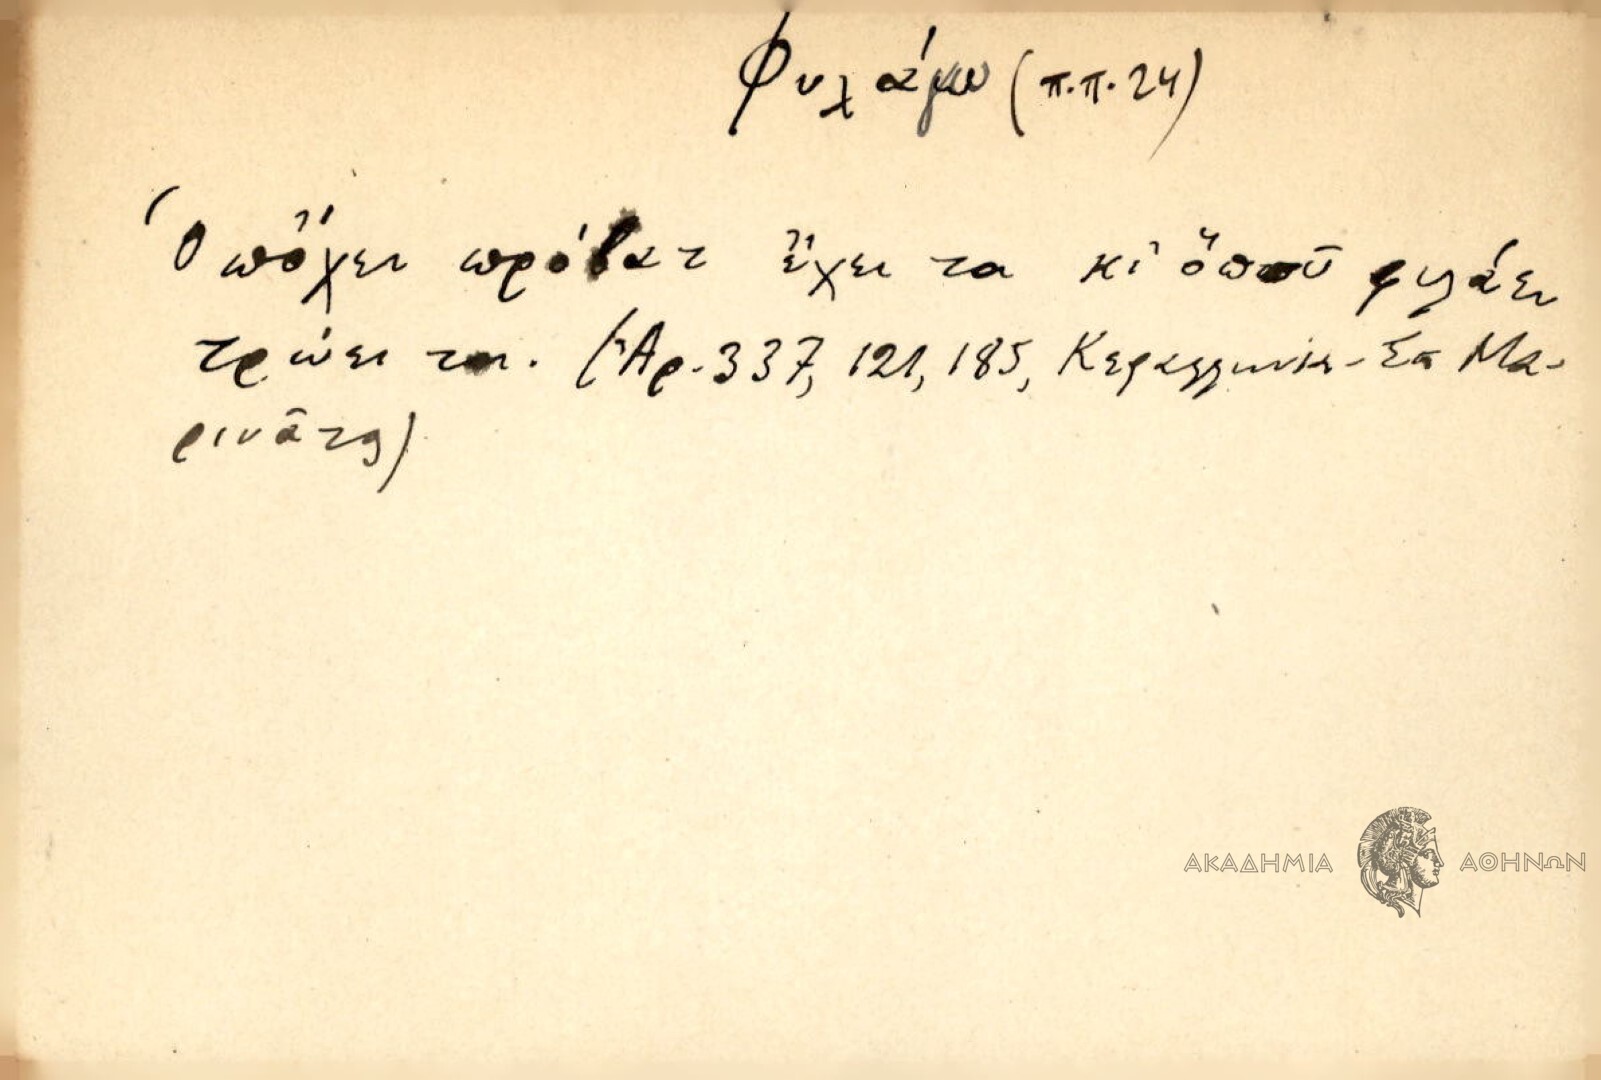 Φυλάγω (π.π. 24)
Ὁπὄχει πρόβατ ἔχει τα κι ὅποῦ φυλάει
τρώει τα. (Ἀρ. 337, 121, 185, Κεφαλληνία - Σπ Μα-
ρινᾶτος)
ΑΚΑΔΗΜΙΑ ΑΘΗΝΩΝ